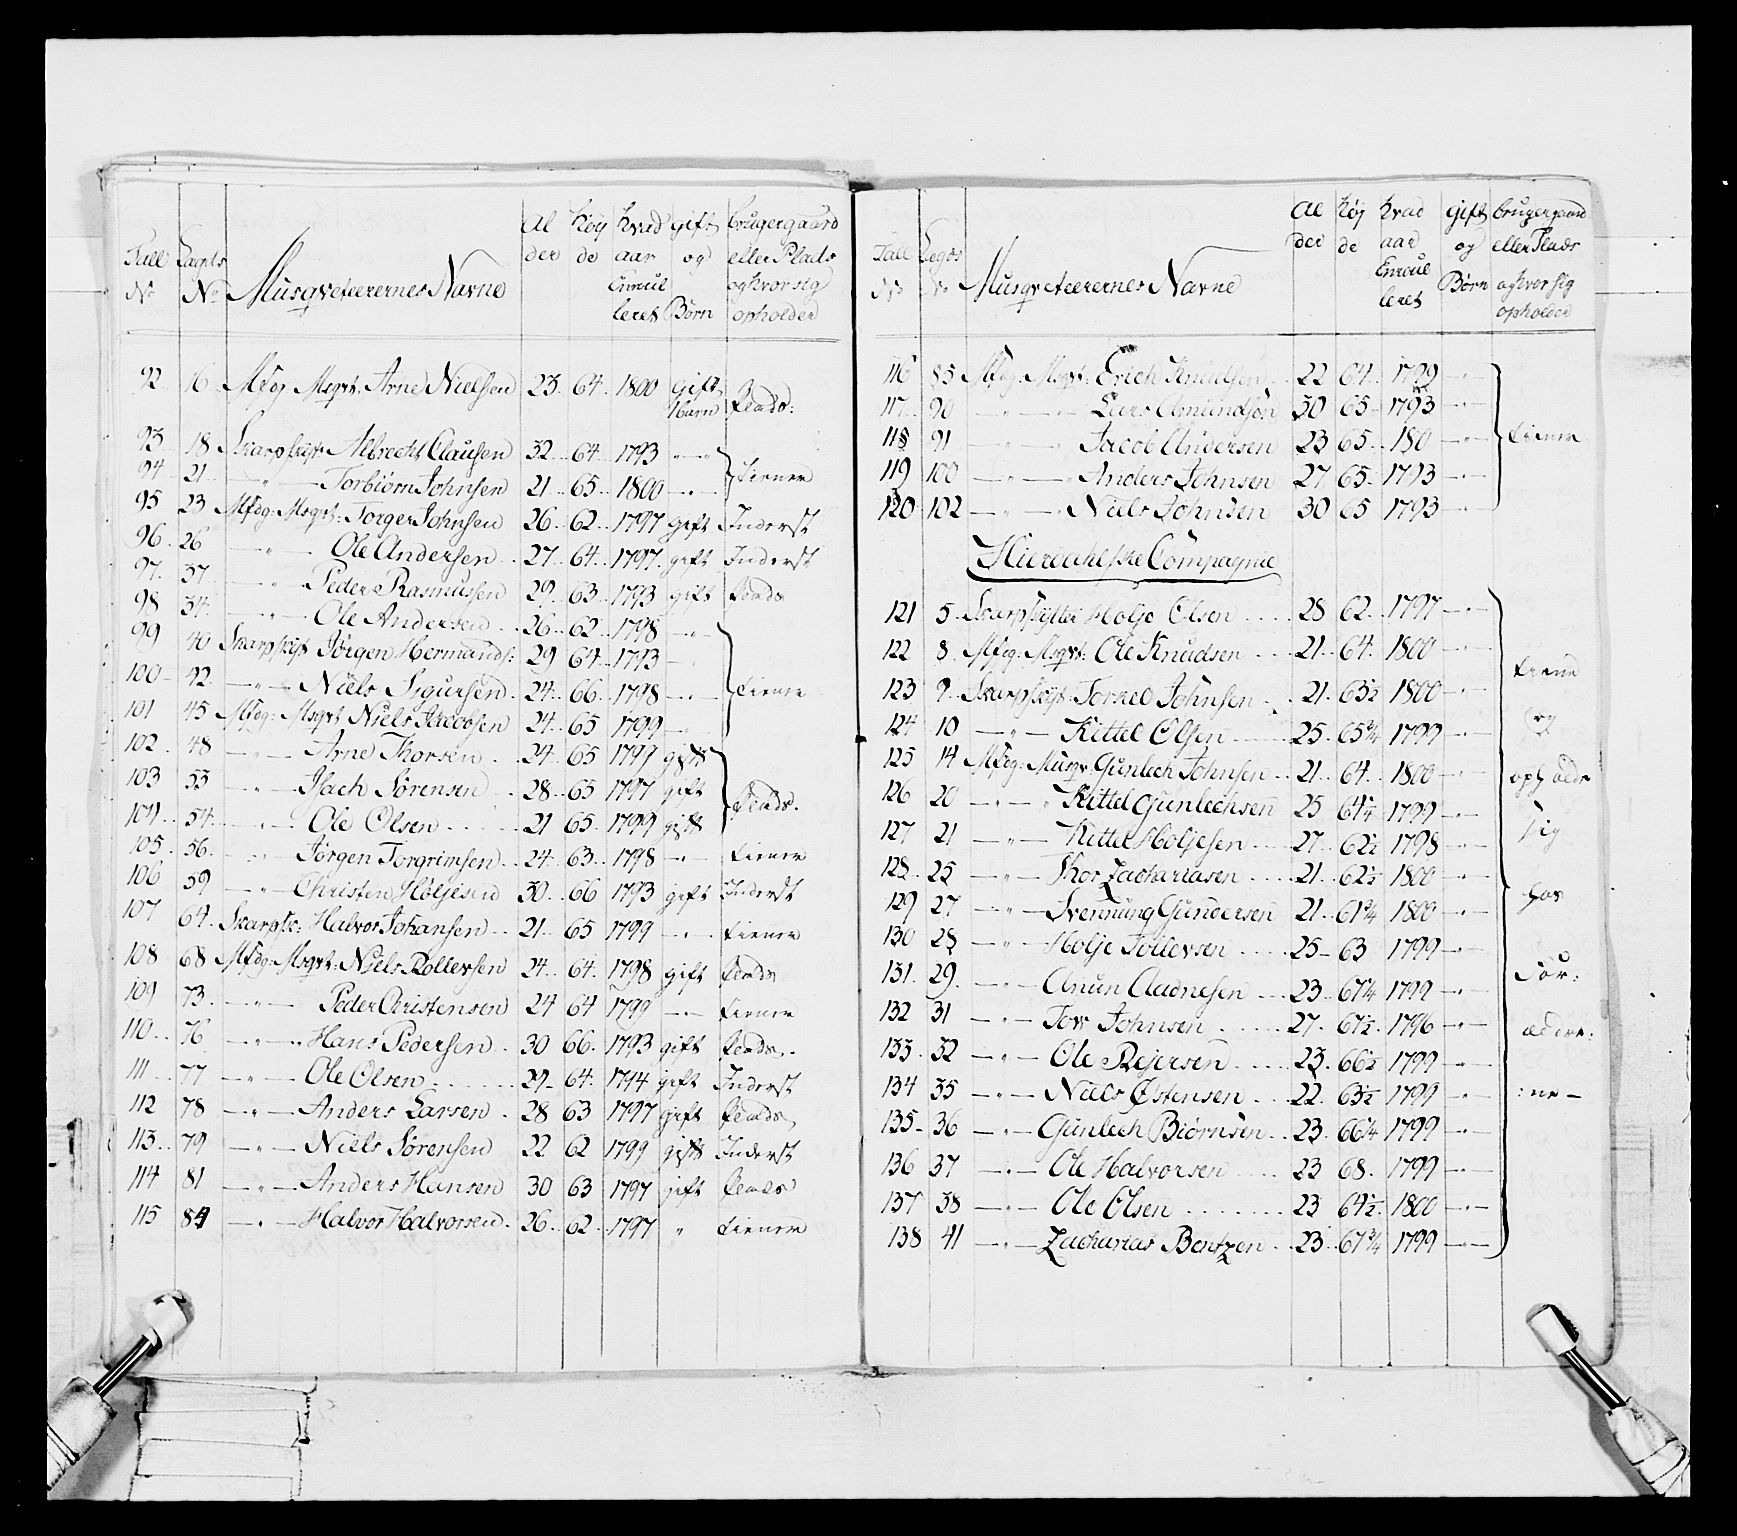 Tall No | Lægds No | Musqveteerernes Navne | Al der | höy de | hvad aar Enroul leret | gift og Börn | brugergaard eller Plads og hvor sig opholder
92 16 Mfdg: Msqvt: Arne Nielsen 23 64 1800 gift 1 barn Plads:
93 18 Skarpskyt Albrecht Clausen 32 64 1793 - " -
94 21 - " - Torbiörn Johnsen 21 65 1800 - " - tiener
95 23 Mfdg: Msqvt: Torger Johnsen 26 62 1797 gift Inderst
96 26 - " - Ole Andersen 27 64 1797 gift Inderst
97 37 - " - Peder Rasmussen 29 63 1793 gift Plads
98 34 - " - Ole Andersen 26 62 1798 - " -
99 40 Skarpskyt Jörgen Hermands: 29 64 1793 -
100 42 - " - Niels Sigursen 24 66 1798 - " - tiener
101 45 Mfdg: Msqvt Niels Jacobsen 24 65 1799 - " -
102 48 - " - Arne Thorsen 24 65 1799 gift
103 53 - " - Isach Sörensen 28 65 1797 gift Plads.
104 54 - " - Ole Olsen 21 65 1799 gift
105 56 - " - Jörgen Torgrimsen 24 63 1798 - " - tiener
106 59 - " - Christen Höljesen 30 66 1793 gift Inderst
107 64 Skarpsk: Halvor Johansen 21 65 1799 - " - tiener
108 68 Mfdg: Msqvt: Niels Rollevsen 24 64 1798 gift Plads
109 73 - " - Peder Christensen 24 64 1799 - " - tiener
110 76 - " - Hans Pedersen 30 66 1793 gift Plads
111 77 - " - Ole Olsen 29 64 1794 gift Inderst
112 78 - " - Anders Larsen 28 63 1797 gift Plads
113 79 - " - Niels Sörensen 22 62 1799 gift Inderst
114 81 - " - Anders Hansen 30 63 1797 gift Plads
115 84 - " - Halvor Halvorsen 26 62 1797 " tiener
Tall No | Legds No | Musqveteerernes Navne | Al der | höj de | hvad aar Enroul leret | gift og Börn | brugergaard eller Plads og hvor sig opholder
116 85 Mfdg: Msqt: Erich Knudsen 22 64 1799 - " -
117 90 - " - Lars Amundsön 30 65 1793 - " -
118 91 - " - Jacob Andersen 23 65 180 - " - tiener
119 100 - " - Anders Johnsen 27 65 1793 - " -
120 102 - " - Niels Johnsen 30 65 1793 - " -
Hieredahlske Compagnie
121 5 Skarpskytter Holje Olsen 28 62 1797 - " -
122 8 Mfdg: Msqvt: Ole Knudsen 21 64 1800 - " -
123 9 Skarpskyt: Torkel Johnsen 21 63½ 1800 - " - tiene
124 10 - " - Kittel Olsen 25 65¾ 1799 - " - og
125 14 Mfdg: Musqv: Gunlech Johnsen 21 64 1800 - " - opholde
126 20 - " - Kittel Gunlechsen 25 64¼ 1799 - " -
127 21 - " - Kittel Holjesen 27 62½ 1798 - " - sig
128 25 - " - Thor Zachariasen 21 62½ 1800 - " -
129 27 - " - Svennung Gundersen 21 61¾ 1800 - " - hos
130 28 - " - Holje Tollevsen 25 63 1799 - " -
131 29 - " - Anun Aadnesen 23 67¼ 1799 - " - For:
132 31 - " - Tov Johnsen 27 67½ 1796 - " - ældre:
133 32 - " - Ole Rejersen 23 66½ 1799 - " -
134 35 - " - Niels Östensen 22 63½ 1799 - " - :ne -
135 36 - " - Gunlech Biörnsen 23 66¼ 1799 - " -
136 37 - " - Ole Halvorsen 23 68 1799 - " -
137 38 - " - Ole Olsen 23 64½ 1800 - " -
138 41 - " - Zacharias Bentzen 23 67¾ 1799 - " -